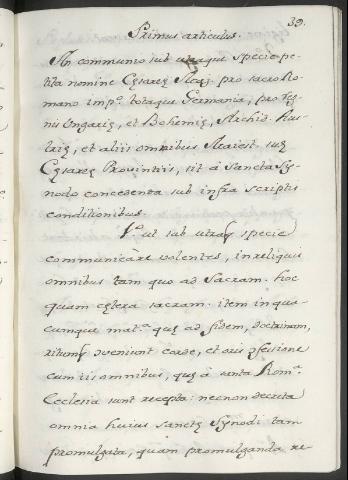 39.
Primus articulus.
An communio sub utraque specie pe-
tita nomine Cęsareę Maᵗⁱˢ pro sacro Ro-
mano impº. totaque Germania, pro reg-
nis Ungarię, et Bohemię, Archid. Aus-
trię, et aliis omnibus Maiest. suę
Cęsareę Provintiis, sit à Sancta Sy-
nodo concedenda sub infra scriptis
conditionibus.
P.º ut sub utraq specie
communicàre volentes, in reliquis
omnibus tam quo ad Sacram. hoc
quam cętera sacram. item in quà-
cumque mat.ª quę ad fidem, doctrinam,
ritumq, conveniunt corde, et oris confessione
cum iis omnibus, quę à santa Romª.
Ecclesia sunt recepta: necnon decreta
omnia huius sanctę Synodi tam
promulgata, quam promulganda re